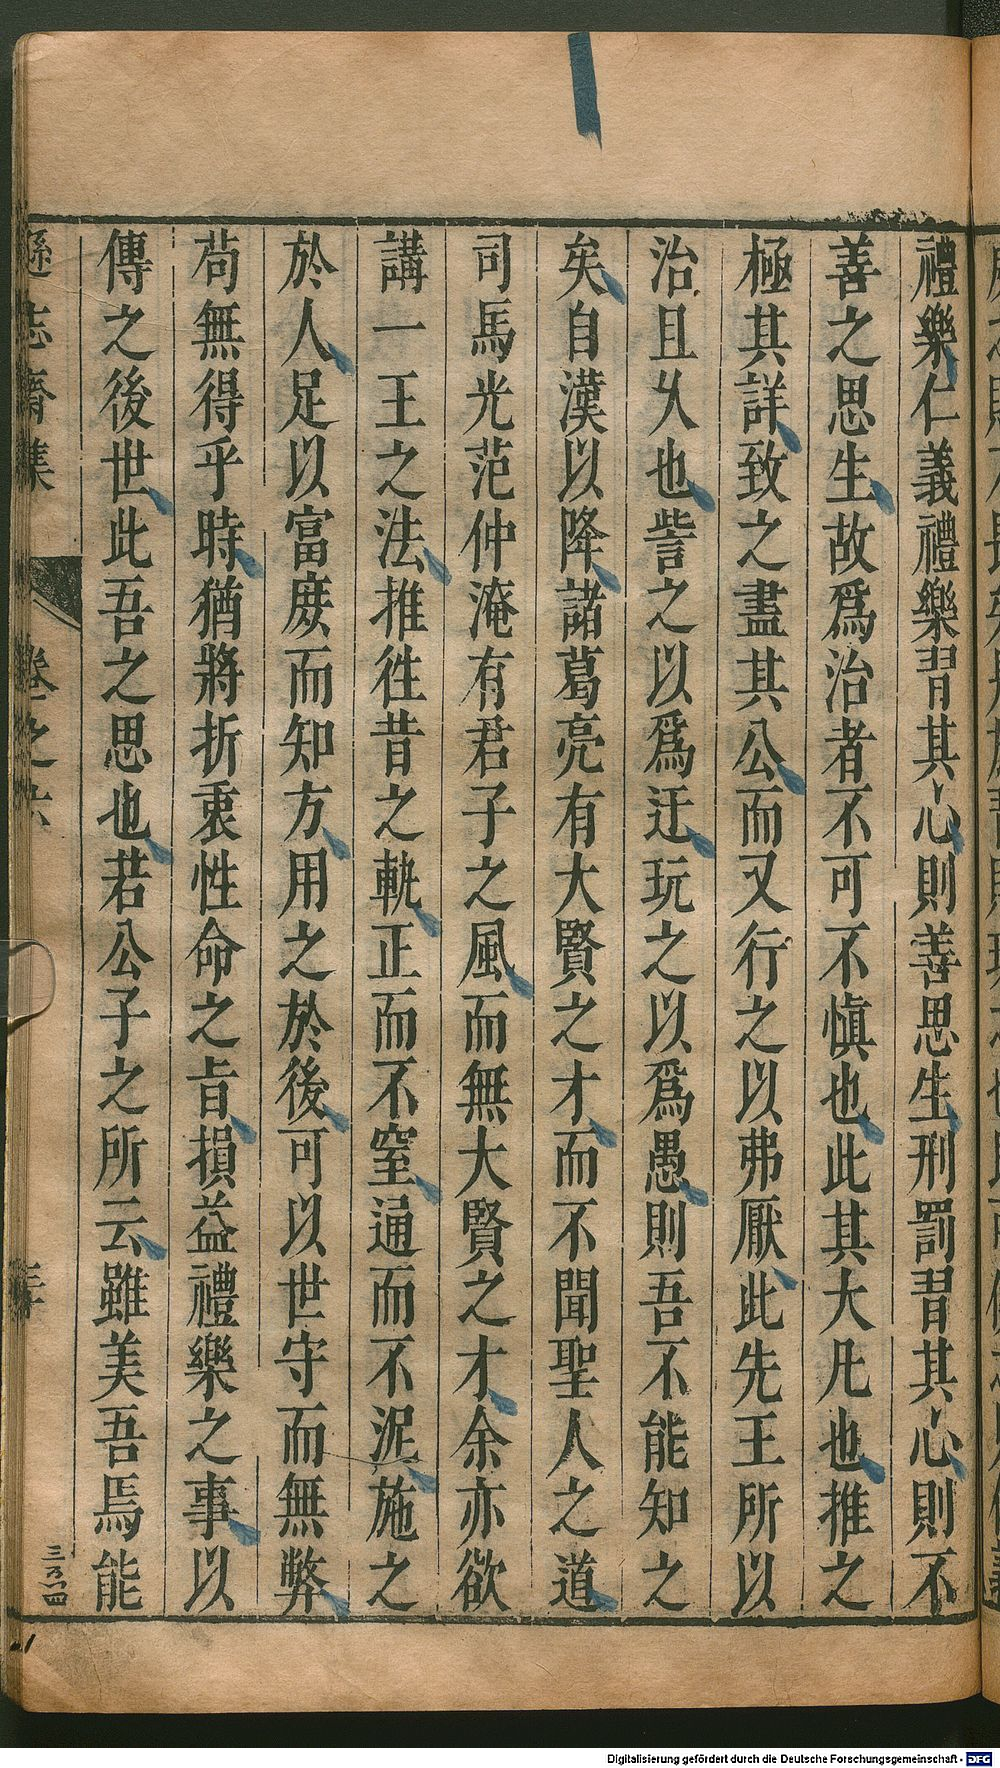 禮樂仁義禮樂習其心則善思生刑罰習其心則不
善之思生故爲治者不可不慎也此其大凡也推之
極其詳致之盡其公而又行之以弗厭此先王所以
治且久也訾之以爲迂玩之以爲愚則吾不能知之
矣自漢以降諸葛亮有大賢之才而不聞聖人之道
司馬光范仲淹有君子之風而無大賢之才余亦欲
講一王之法推徃昔之軌正而不窒通而不泥施之
於人足以富庻而知方用之於後可以世守而無弊
苟無得乎時猶將折衷性命之旨損益禮樂之事以
傳之後世此吾之思也若公子之所云雖美吾焉能
遜志齋集 卷之六
三百四
Digitalisierung gefördert durch die Deutsche Forschungsgemeinschaft - DFG